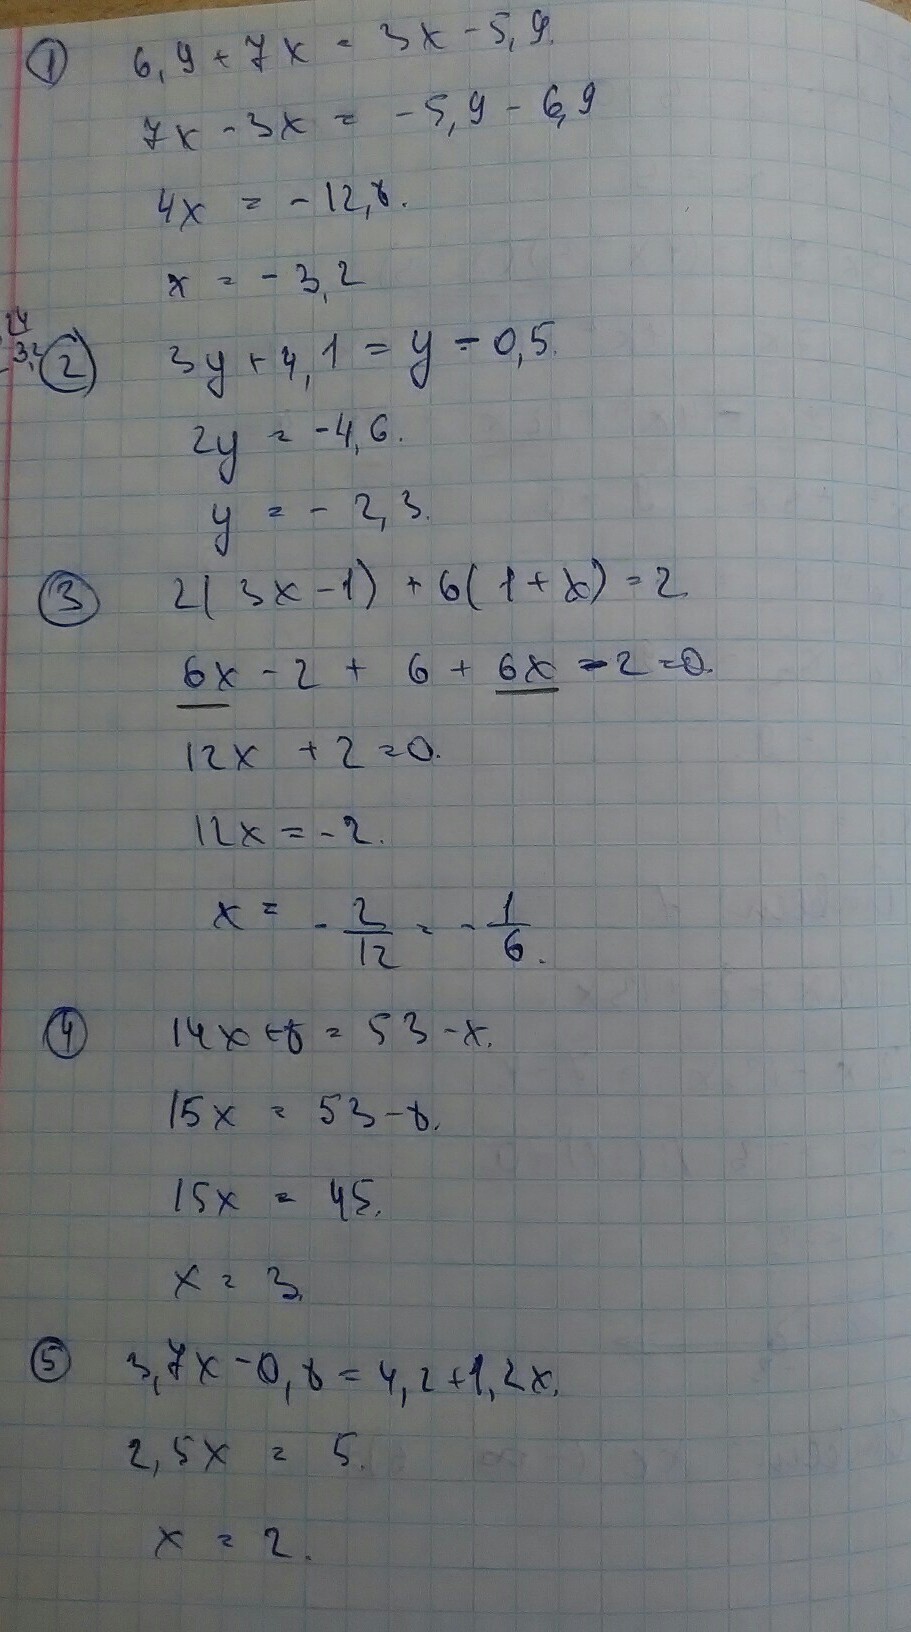 ① 6,9 + 7x = 3x - 5,9.
7x - 3x = - 5,9 - 6,9
4x = - 12,8.
x = - 3,2
② 3y + 4,1 = y - 0,5.
2y = -4,6.
y = - 2,3.
③ 2(3x - 1) + 6(1 + x) = 2
6x - 2 + 6 + 6x - 2 = 0.
12x + 2 = 0.
12x = - 2.
x = - 2/12 = - 1/6.
④ 14x + 8 = 53 - x.
15x = 53 - 8.
15x = 45.
x = 3.
⑤ 3,7x - 0,8 = 4,2 + 1,2x.
2,5x = 5.
x = 2.